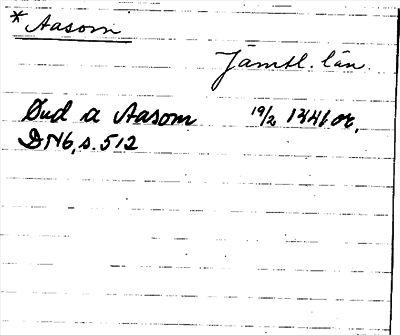 * Aasom
Jämtl. län.
Gud a Aasom 19/2 1441 or.
DN16, s. 512